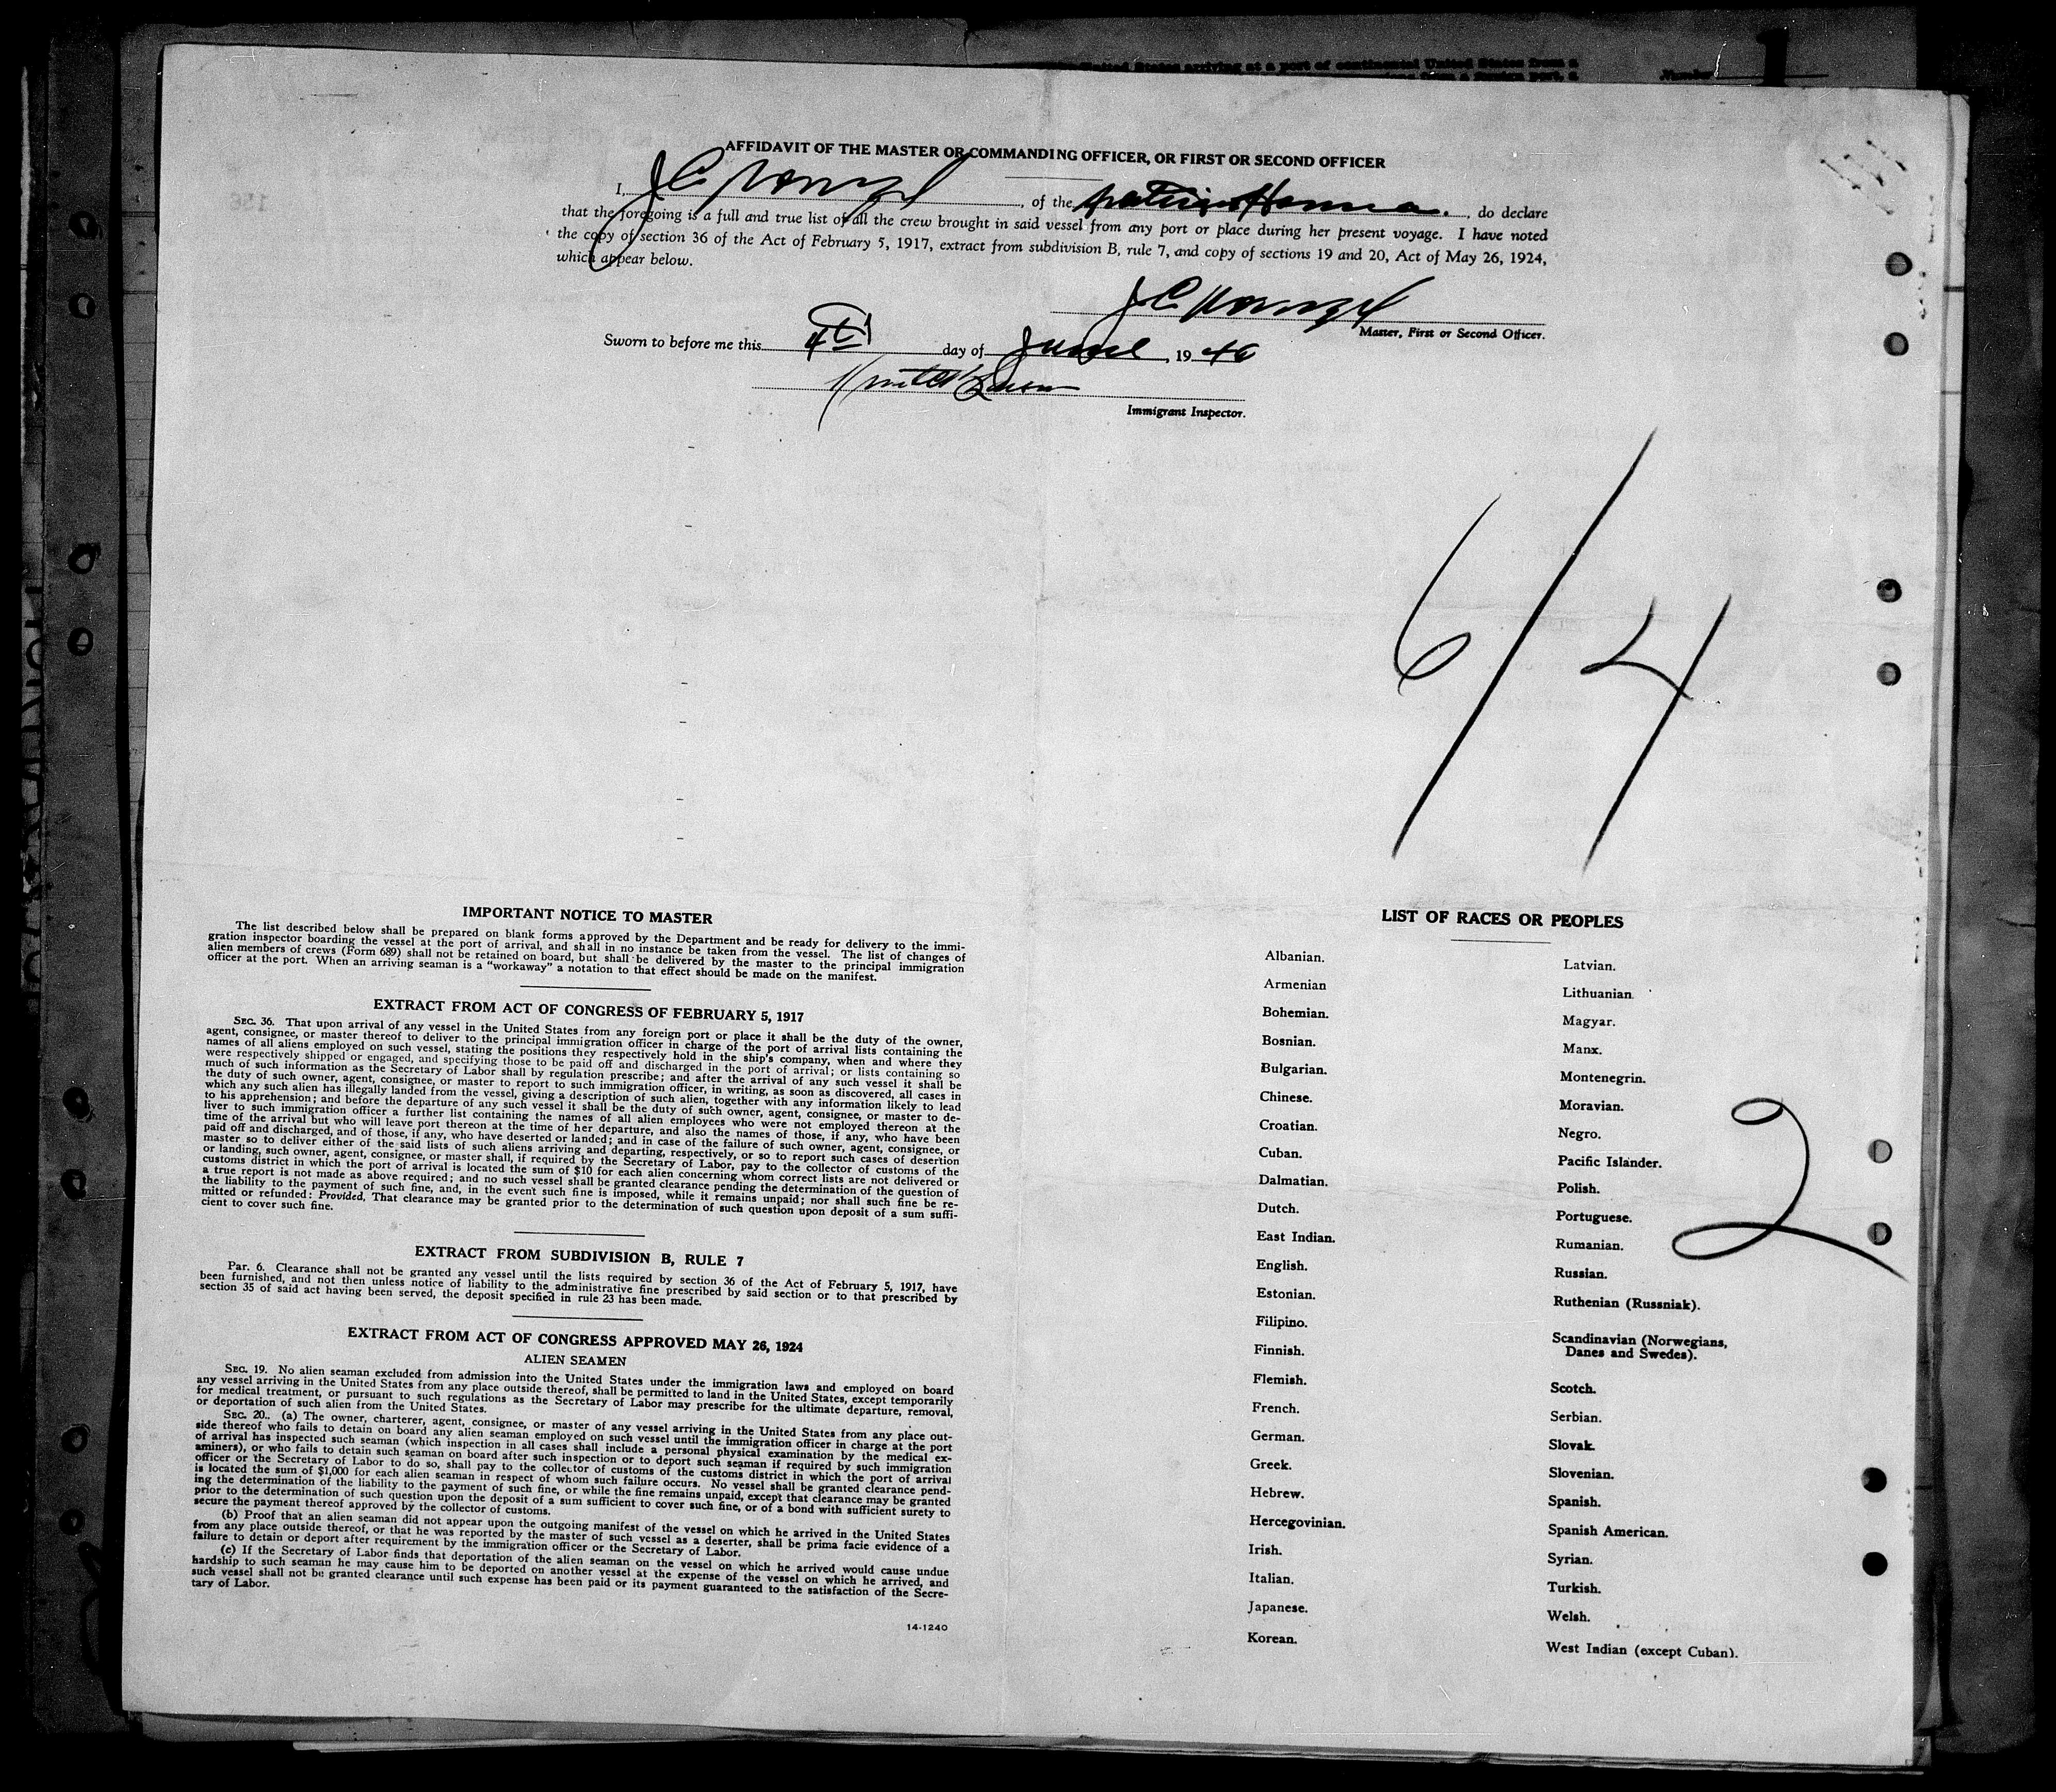 United States arriving at a port of continental United States from a
Number 1
AFFIDAVIT OF THE MASTER OR COMMANDING OFFICER, OR FIRST OR SECOND OFFICER
I, J C , of the Hanna. , do declare
that the foregoing is a full and true list of all the crew brought in said vessel from any port or place during her present voyage. I have noted
the copy of section 36 of the Act of February 5, 1917, extract from subdivision B, rule 7, and copy of sections 19 and 20, Act of May 26, 1924,
which appear below.
J C
Master, First or Second Officer.
Sworn to before me this 4th day of June, 19 40
Immigrant Inspector.
6/4
IMPORTANT NOTICE TO MASTER
The list described below shall be prepared on blank forms approved by the Department and be ready for delivery to the immi-
gration inspector boarding the vessel at the port of arrival, and shall in no instance be taken from the vessel. The list of changes of
alien members of crews (Form 689) shall not be retained on board, but shall be delivered by the master to the principal immigration
officer at the port. When an arriving seaman is a "workaway" a notation to that effect should be made on the manifest.
EXTRACT FROM ACT OF CONGRESS OF FEBRUARY 5, 1917
SEC. 36. That upon arrival of any vessel in the United States from any foreign port or place it shall be the duty of the owner,
agent, consignee, or master thereof to deliver to the principal immigration officer in charge of the port of arrival lists containing the
names of all aliens employed on such vessel, stating the positions they respectively hold in the ship's company, when and where they
were respectively shipped or engaged, and specifying those to be paid off and discharged in the port of arrival; or lists containing so
much of such information as the Secretary of Labor shall by regulation prescribe; and after the arrival of any such vessel it shall be
the duty of such owner, agent, consignee, or master to report to such immigration officer, in writing, as soon as discovered, all cases in
which any such alien has illegally landed from the vessel, giving a description of such alien, together with any information likely to lead
to his apprehension; and before the departure of any such vessel it shall be the duty of such owner, agent, consignee, or master to de-
liver to such immigration officer a further list containing the names of all alien employees who were not employed thereon at the
time of the arrival but who will leave port thereon at the time of her departure, and also the names of those, if any, who have been
paid off and discharged, and of those, if any, who have deserted or landed; and in case of the failure of such owner, agent, consignee, or
master so to deliver either of the said lists of such aliens arriving and departing, respectively, or so to report such cases of desertion
or landing, such owner, agent, consignee, or master shall, if required by the Secretary of Labor, pay to the collector of customs of the
customs district in which the port of arrival is located the sum of $10 for each alien concerning whom correct lists are not delivered or
a true report is not made as above required; and no such vessel shall be granted clearance pending the determination of the question of
the liability to the payment of such fine, and, in the event such fine is imposed, while it remains unpaid; nor shall such fine be re-
mitted or refunded: Provided, That clearance may be granted prior to the determination of such question upon deposit of a sum suffi-
cient to cover such fine.
EXTRACT FROM SUBDIVISION B, RULE 7
Par. 6. Clearance shall not be granted any vessel until the lists required by section 36 of the Act of February 5, 1917, have
been furnished, and not then unless notice of liability to the administrative fine prescribed by said section or to that prescribed by
section 35 of said act having been served, the deposit specified in rule 23 has been made.
EXTRACT FROM ACT OF CONGRESS APPROVED MAY 26, 1924
ALIEN SEAMEN
SEC. 19. No alien seaman excluded from admission into the United States under the immigration laws and employed on board
any vessel arriving in the United States from any place outside thereof, shall be permitted to land in the United States, except temporarily
for medical treatment, or pursuant to such regulations as the Secretary of Labor may prescribe for the ultimate departure, removal,
or deportation of such alien from the United States.
SEC. 20.. (a) The owner, charterer, agent, consignee, or master of any vessel arriving in the United States from any place out-
side thereof who fails to detain on board any alien seaman employed on such vessel until the immigration officer in charge at the port
of arrival has inspected such seaman (which inspection in all cases shall include a personal physical examination by the medical ex-
aminers), or who fails to detain such seaman on board after such inspection or to deport such seaman if required by such immigration
officer or the Secretary of Labor to do so, shall pay to the collector of customs of the customs district in which the port of arrival
is located the sum of $1,000 for each alien seaman in respect of whom such failure occurs. No vessel shall be granted clearance pend-
ing the determination of the liability to the payment of such fine, or while the fine remains unpaid, except that clearance may be granted
prior to the determination of such question upon the deposit of a sum sufficient to cover such fine, or of a bond with sufficient surety to
secure the payment thereof approved by the collector of customs.
(b) Proof that an alien seaman did not appear upon the outgoing manifest of the vessel on which he arrived in the United States
from any place outside thereof, or that he was reported by the master of such vessel as a deserter, shall be prima facie evidence of a
failure to detain or deport after requirement by the immigration officer or the Secretary of Labor.
(c) If the Secretary of Labor finds that deportation of the alien seaman on the vessel on which he arrived would cause undue
hardship to such seaman he may cause him to be deported on another vessel at the expense of the vessel on which he arrived, and
such vessel shall not be granted clearance until such expense has been paid or its payment guaranteed to the satisfaction of the Secre-
tary of Labor.
14-1240
LIST OF RACES OR PEOPLES
Albanian.
Armenian
Bohemian.
Bosnian.
Bulgarian.
Chinese.
Croatian.
Cuban.
Dalmatian.
Dutch.
East Indian.
English.
Estonian.
Filipino.
Finnish.
Flemish.
French.
German.
Greek.
Hebrew.
Hercegovinian.
Irish.
Italian.
Japanese.
Korean.
Latvian.
Lithuanian.
Magyar.
Manx.
Montenegrin.
Moravian.
Negro.
Pacific Islander.
Polish.
Portuguese.
Rumanian.
Russian.
Ruthenian (Russniak).
Scandinavian (Norwegians,
Danes and Swedes).
Scotch.
Serbian.
Slovak.
Slovenian.
Spanish.
Spanish American.
Syrian.
Turkish.
Welsh.
West Indian (except Cuban).
2